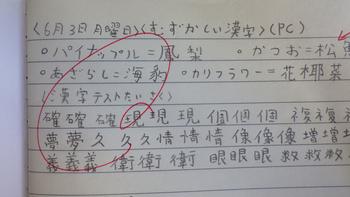 〈6月3日月曜日〉〈むずかしい漢字〉(PC)
○パイナップル=鳳梨 ○かつお=松魚
○あざらし=海豹 ○カリフラワー=花椰菜
〈漢字テストたいさく〉
確確確現現現個個個 複複複
夢夢久久久情情情像像像増増増
義義義衛衛衛眼眼眼数数数